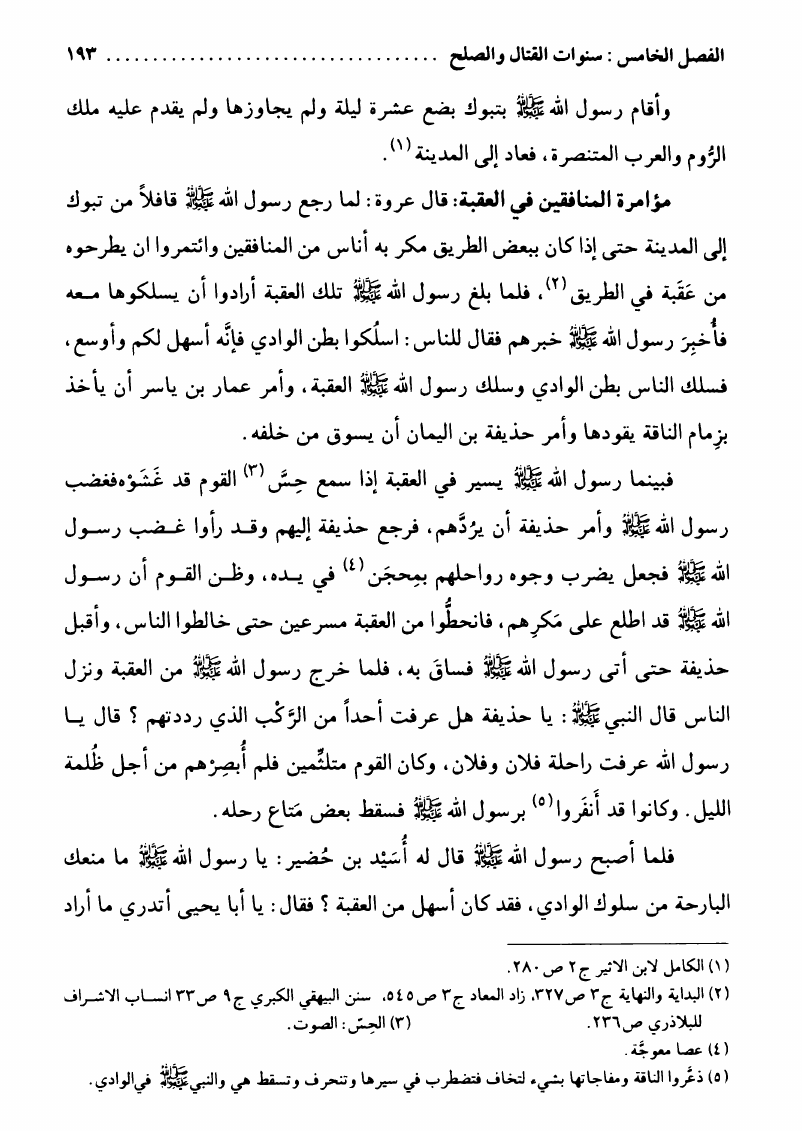 الفصل الخامس : سنوات القتال والصلح .................................... ١٩٣
وأقام رسول الله ﷺ بتبوك بضع عشرة ليلة ولم يجاوزها ولم يقدم عليه ملك
الرُّوم والعرب المتنصرة، فعاد إلى المدينة(١).
مؤامرة المنافقين في العقبة: قال عروة: لما رجع رسول الله ﷺ قافلاً من تبوك
إلى المدينة حتى إذا كان ببعض الطريق مكر به أناس من المنافقين وائتمروا ان يطرحوه
من عَقَبة في الطريق(٢)، فلما بلغ رسول الله ﷺ تلك العقبة أرادوا أن يسلكوها مـعه
فأُخبِرَ رسول الله ﷺ خبرهم فقال للناس: اسلُكوا بطن الوادي فإنَّه أسهل لكم وأوسع،
فسلك الناس بطن الوادي وسلك رسول الله ﷺ العقبة، وأمر عمار بن ياسر أن يأخذ
بزِمام الناقة يقودها وأمر حذيفة بن اليمان أن يسوق من خلفه.
فبينما رسول الله ﷺ يسير في العقبة إذا سمع حِسَّ(٣) القوم قد غَشَوْهفغضب
رسول الله ﷺ وأمر حذيفة أن يرُدَّهم، فرجع حذيفة إليهم وقـد رأوا غـضب رسـول
الله ﷺ فجعل يضرب وجوه رواحلهم بمِحجَن(٤) في يـده، وظـن القـوم أن رسـول
الله ﷺ قد اطلع على مَكرِهم، فانحطُّوا من العقبة مسرعين حتى خالطوا الناس، وأقبل
حذيفة حتى أتى رسول الله ﷺ فساقَ به، فلما خرج رسول الله ﷺ من العقبة ونزل
الناس قال النبي ﷺ: يا حذيفة هل عرفت أحداً من الرَّكْب الذي رددتهم ؟ قال يـا
رسول الله عرفت راحلة فلان وفلان، وكان القوم متلثِّمين فلم أُبصِرْهم من أجل ظُلمة
الليل. وكانوا قد أَنفَروا(٥) برسول الله ﷺ فسقط بعض مَتاع رحله.
فلما أصبح رسول الله ﷺ قال له أُسَيْد بن حُضير: يا رسول الله ﷺ ما منعك
البارحة من سلوك الوادي، فقد كان أسهل من العقبة ؟ فقال: يا أبا يحيى أتدري ما أراد
(١) الكامل لابن الاثير ج٢ ص٢٨٠.
(٢) البداية والنهاية ج٣ ص٣٢٧، زاد المعاد ج٣ ص٥٤٥، سنن البيهقي الكبري ج٩ ص٣٣ انسـاب الاشـراف
للبلاذري ص٢٣٦. (٣) الحِسّ: الصوت.
(٤) عصا معوجَّة.
(٥) ذعَّروا الناقة ومفاجاتها بشيء لتخاف فتضطرب في سيرها وتنحرف وتسقط هي والنبي ﷺ في الوادي.